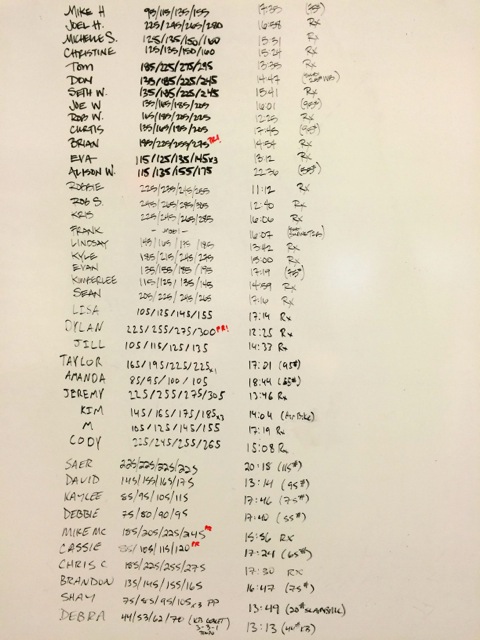 MIKE H 95/115/135/155 17:35 (55#)
JOEL H. 225/245/265/280 16:58 Rx
MICHELLE S. 125/135/150/160 15:31 Rx
CHRISTINE 125/135/150/160 15:24 Rx
TOM 185/225/275/295 13:35 Rx
DON 135/185/225/245 14:47
SETH W. 135/185/225/245 15:41 Rx
JOE W 135/165/185/205 16:01 (95#)
ROB W. 165/185/205/225 12:25 Rx
CURTIS 135/165/185/205 17:45 (95#)
BRIAN 185/225/255/275 PR! 14:54 Rx
EVA 115/125/135/145x3 13:12 Rx
ALISON W. 115/135/155/175 22:36 (55#)
ROBBIE 225/235/245/255 11:12 Rx
ROB S. 245/265/285/305 12:40 Rx
KRIS 225/245/265/285 16:06 Rx
FRANK 16:07
LINDSAY 145/165/175/185 13:42 Rx
KYLE 185/215/245/275 15:00 Rx
EVAN 135/155/185/195 17:19 (55#)
KIMBERLEE 115/125/135/145 14:59 Rx
SEAN 205/225/245/265 17:16 Rx
LISA 105/125/145/155 17:14 Rx
DYLAN 225/255/275/300 PR! 12:25 Rx
JILL 105/115/125/135 14:33 Rx
TAYLOR 165/195/225/225x1 17:01 (95#)
AMANDA 85/95/100/105 18:44 (65#)
JEREMY 225/255/275/305 13:46 Rx
KIM 145/165/175/185x3 14:04 (AirBike)
M 105/125/145/155 17:19 Rx
CODY 225/245/255/265 15:08 Rx
SAER 225/225/225/225 20:18 (115#)
DAVID 145/155/165/175 13:14 (95#)
KAYLEE 85/95/105/115 17:46 (75#)
DEBBIE 75/80/90/95 17:40 (55#)
MIKE MC 185/205/225/245 PR 15:56 RX
CASSIE 85/105/115/120 PR 17:24 (65#)
CHRIS C 185/225/255/275 17:30 RX
BRANDON 135/145/155/165 16:47 (75#)
SHAY 75/85/95/105x3 PP 13:49 (20# SLAMBALL)
DEBRA 44/53/62/70 13:13